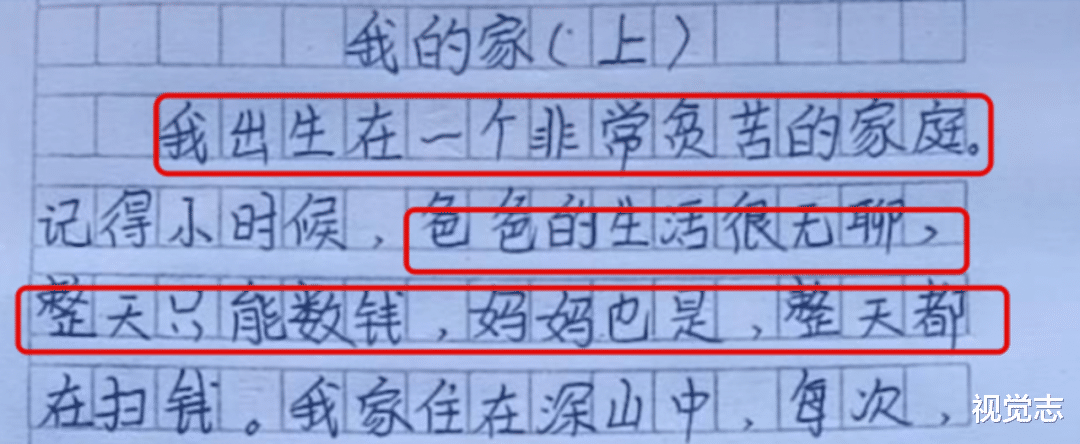 我的家(上)
我出生在一个非常贫苦的家庭。
记得小时候,爸爸的生活很无聊,
整天只能数钱,妈妈也是,整天都
在扫钱。我家住在深山中,每次,
视觉志